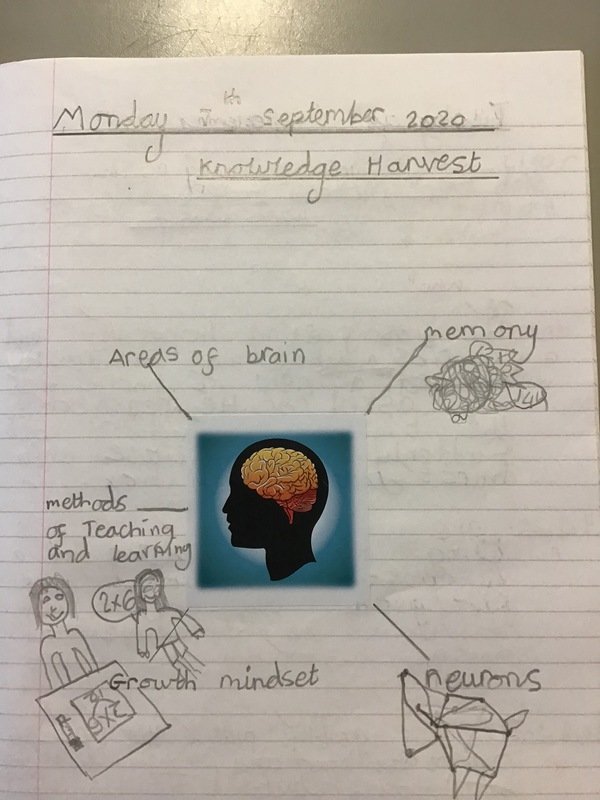 Monday 7th September 2020
Knowledge Harvest
memory
Areas of brain
methods
of Teaching
and learning
2x6
Growth mindset
neurons
2x6